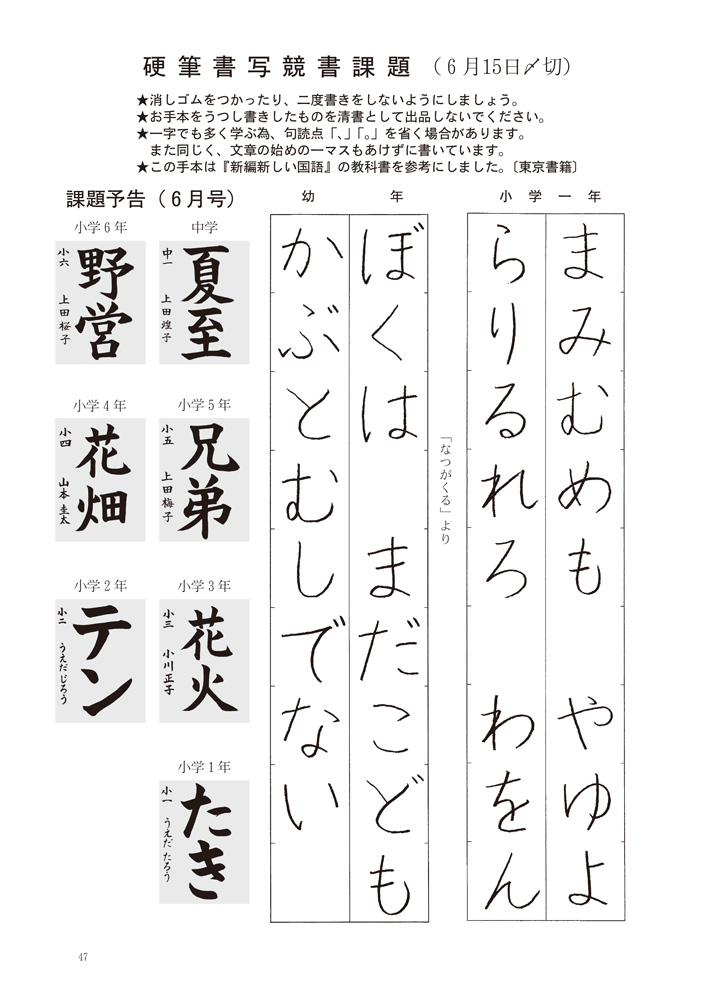 硬筆書写競書課題（６月15日〆切）
★消しゴムをつかったり、二度書きをしないようにしましょう。
★お手本をうつし書きしたものを清書として出品しないでください。
★一字でも多く学ぶ為、句読点「、」「。」を省く場合があります。
また同じく、文章の始めの一マスもあけずに書いています。
★この手本は『新編新しい国語』の教科書を参考にしました。〔東京書籍〕
小学一年
まみむめも　やゆよ
らりるれろ　わをん
幼年
「なつがくる」より
ぼくは　まだこども
かぶとむしでない
課題予告（６月号）
中学
夏至
中一　上田煌子
小学６年
野営
小六　上田桜子
小学５年
兄弟
小五　上田梅子
小学４年
花畑
小四　山本圭太
小学３年
花火
小三　小川正子
小学２年
テン
小二　うえだじろう
小学１年
たき
小一　うえだたろう
47